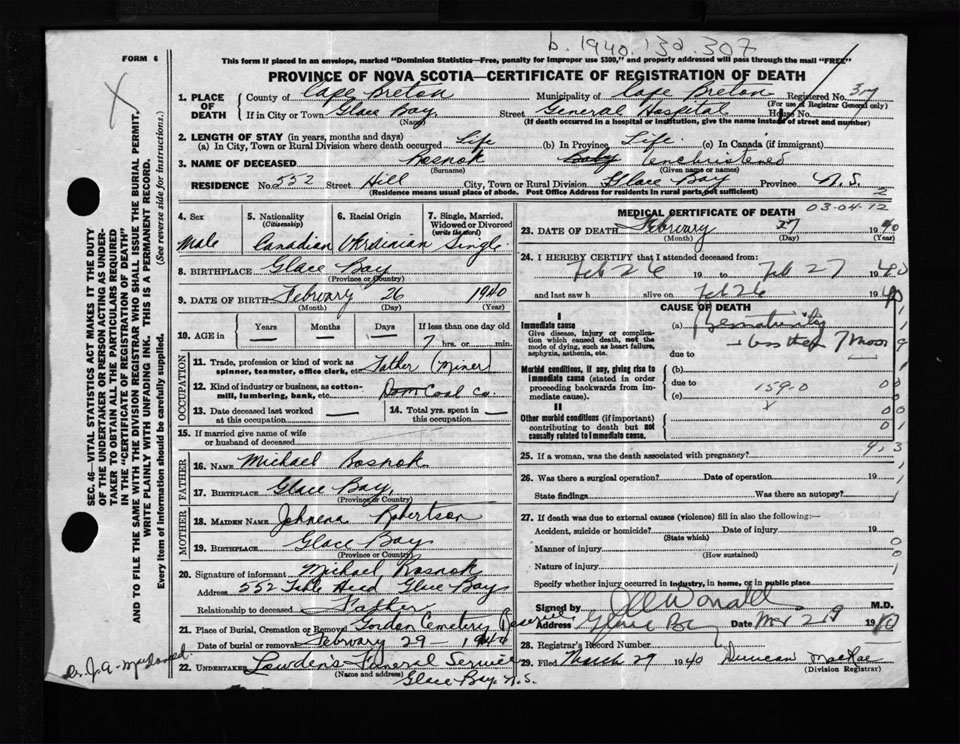 b. 1940. 132. 307
FORM 6
This form if placed in an envelope, marked "Dominion Statistics—Free, penalty for improper use $300," and properly addressed will pass through the mail "FREE"
PROVINCE OF NOVA SCOTIA—CERTIFICATE OF REGISTRATION OF DEATH
SEC. 46—VITAL STATISTICS ACT MAKES IT THE DUTY
OF THE UNDERTAKER OR PERSON ACTING AS UNDER-
TAKER TO OBTAIN ALL THE PARTICULARS REQUIRED
IN THE "CERTIFICATE OF REGISTRATION OF DEATH"
AND TO FILE THE SAME WITH THE DIVISION REGISTRAR WHO SHALL ISSUE THE BURIAL PERMIT.
WRITE PLAINLY WITH UNFADING INK. THIS IS A PERMANENT RECORD.
Every item of information should be carefully supplied. (See reverse side for instructions.)
1. PLACE OF DEATH
County of Cape Breton Municipality of Cape Breton Registered No. 37
(For use of Registrar General only)
If in City or Town Glace Bay Street General Hospital House No.
(Name) (If death occurred in a hospital or institution, give the name instead of street and number)
2. LENGTH OF STAY (in years, months and days)
(a) In City, Town or Rural Division where death occurred Life (b) In Province Life (c) In Canada (if immigrant)
3. NAME OF DECEASED Rosnok Baby Unchristened
(Surname) (Given name or names)
RESIDENCE No. 552 Street Hill City, Town or Rural Division Glace Bay Province N.S.
(Residence means usual place of abode. Post Office Address for Residents in rural parts not sufficient)
4. Sex
Male
5. Nationality
(Citizenship)
Canadian
6. Racial Origin
Ukrainian
7. Single, Married,
Widowed or Divorced
(write the word)
Single
8. BIRTHPLACE Glace Bay
(Province or Country)
9. DATE OF BIRTH February 26 1940
(Month) (Day) (Year)
10. AGE in
Years Months Days If less than one day old
— — — 7 hrs. or min.
OCCUPATION
11. Trade, profession or kind of work as
spinner, teamster, office clerk, etc. Father (Miner)
12. Kind of industry or business, as cotton-
mill, lumbering, bank, etc. Dom Coal Co.
13. Date deceased last worked
at this occupation —
14. Total yrs. spent in
this occupation —
15. If married give name of wife
or husband of deceased
FATHER
16. NAME Michael Rosnok
17. BIRTHPLACE Glace Bay
(Province or Country)
MOTHER
18. MAIDEN NAME Johnena Robertson
19. BIRTHPLACE Glace Bay
(Province or Country)
20. Signature of informant Michael Rosnok
Address 552 Glace Bay
Relationship to deceased Father
21. Place of Burial, Cremation or Removal Gordon Cemetery Reserve
Date of burial or removal February 29 1940
22. UNDERTAKER Lowden's Funeral Service
(Name and address)
Glace Bay. N.S.
Dr. J.A. McDonald
03-04-12
MEDICAL CERTIFICATE OF DEATH
23. DATE OF DEATH February 27 1940
(Month) (Day) (Year)
24. I HEREBY CERTIFY that I attended deceased from:
Feb 26 19 to Feb 27 1940
and last saw h alive on Feb 26 1940
CAUSE OF DEATH
I
Immediate cause
Give disease, injury or complica-
tion which caused death, not the
mode of dying, such as heart failure,
asphyxia, asthenia, etc.
(a) Prematurity
- less than 7 mos
due to
Morbid conditions, if any, giving rise to
immediate cause (stated in order
proceeding backwards from im-
mediate cause).
(b)
due to 159.0
(c)
II
Other morbid conditions (if important)
contributing to death but not
causally related to immediate cause.
25. If a woman, was the death associated with pregnancy?
26. Was there a surgical operation? Date of operation 19
State findings Was there an autopsy?
27. If death was due to external causes (violence) fill in also the following:—
Accident, suicide or homicide? Date of injury 19
(State which)
Manner of injury
(How sustained)
Nature of injury
Specify whether injury occurred in industry, in home, or in public place
Signed by M.D.
Address Glace Bay Date 1940
28. Registrar's Record Number
29. Filed March 29 1940 Duncan MacRae
(Division Registrar)